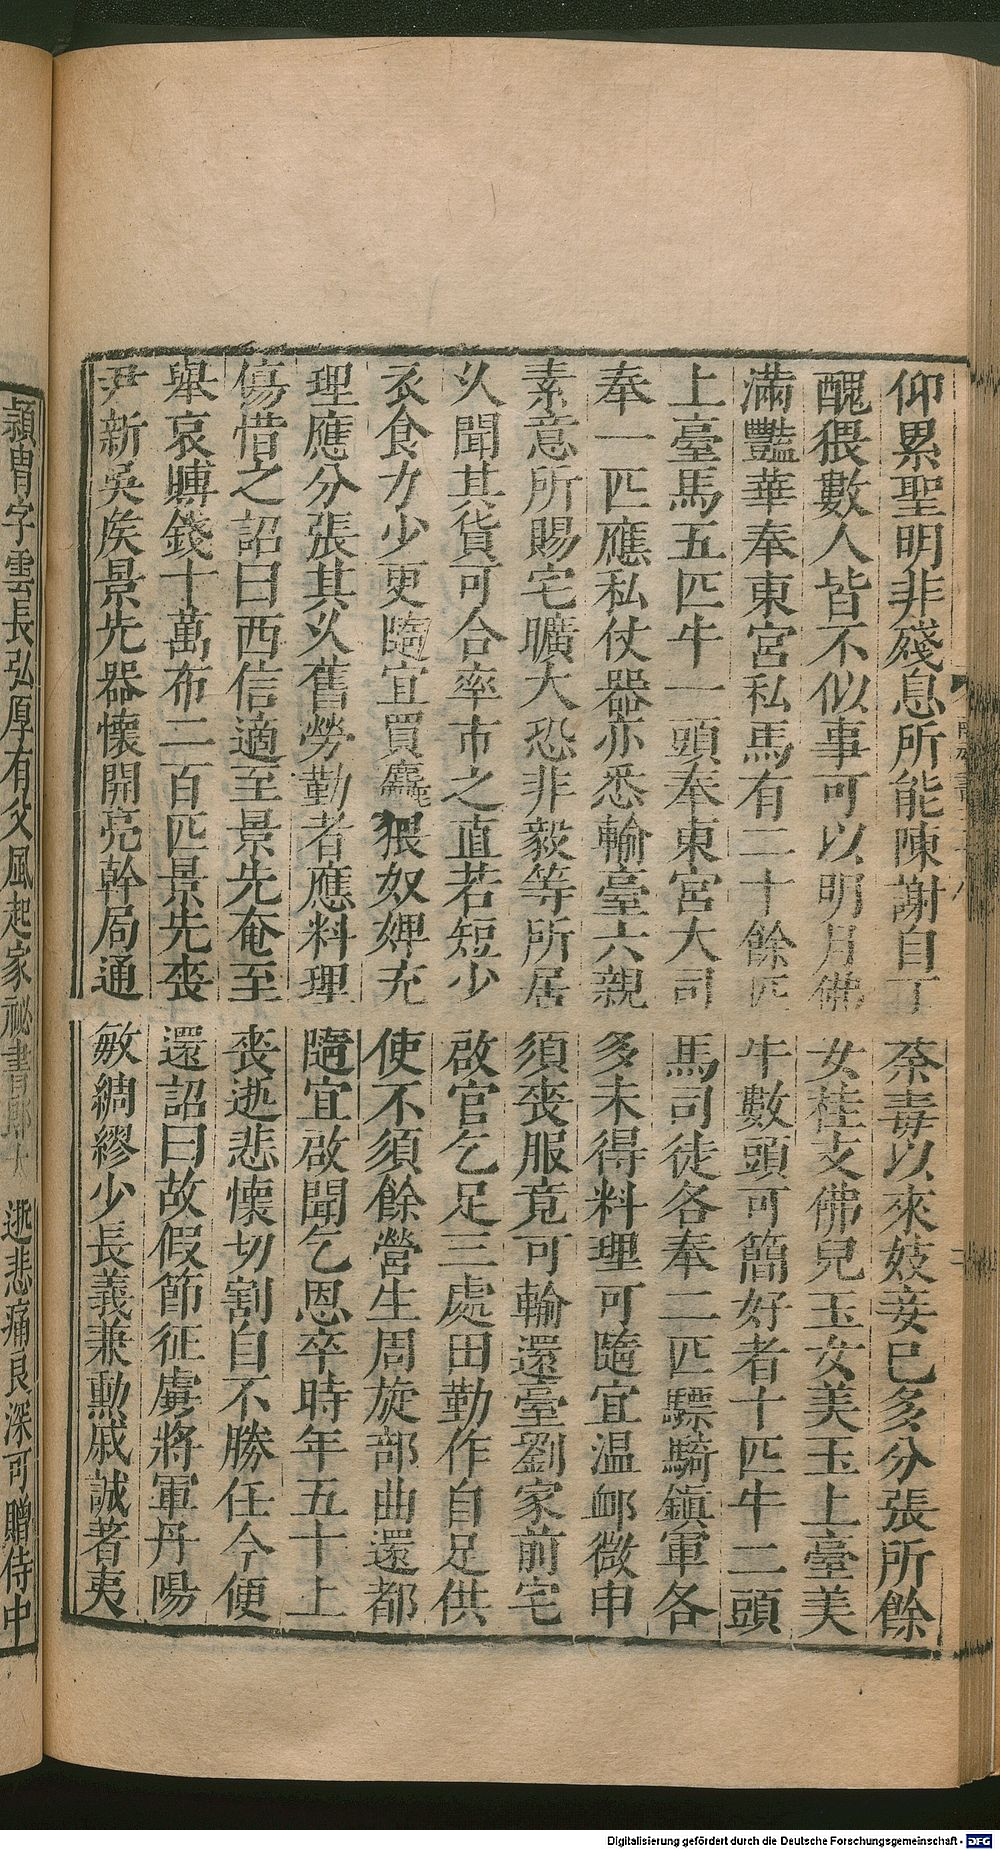 仰累聖明非殘息所能陳謝自丁荼毒以來妓妾已多分張所餘
醜猥數人皆不似事可以明月佛女桂支佛兒玉女美玉上臺美
滿豔華奉東宮私馬有二十餘匹牛數頭可簡好者十匹牛二頭
上臺馬五匹牛一頭奉東宮大司馬司徒各奉二匹驃騎鎮軍各
奉一匹應私仗器亦悉輸臺六親多未得料理可隨宜温䘏微申
素意所賜宅曠大恐非毅等所居須喪服竟可輸還臺劉家前宅
乆聞其貨可合率市之直若短少啟官乞足三處田勤作自足供
衣食力少更隨宜買麤猥奴婢充使不須餘營生周旋部曲還都
理應分張其乆舊勞勤者應料理隨宜啟聞乞恩卒時年五十上
傷惜之詔曰西信適至景先奄至喪逝悲懷切割自不勝任今便
舉哀賻錢十萬布二百匹景先喪還詔曰故假節征虜將軍丹陽
尹新吳矦景先器懷開亮幹局通敏綢繆少長義兼勲戚誠著夷
逝悲痛良深可贈侍中
穎胄字雲長弘厚有父風起家祕書郎太
Digitalisierung gefördert durch die Deutsche Forschungsgemeinschaft - DFG